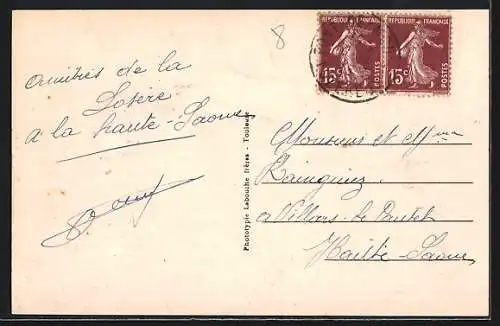 8
REPUBLIQUE FRANÇAISE REPUBLIQUE FRANÇAISE
15c POSTES 15c POSTES
amitiés de la
Losère
a la haute-Saone
Phototypie Labouche frères - Toulouse
Monsieur et Mme
a Villars-le-Pautel
Haute-Saone